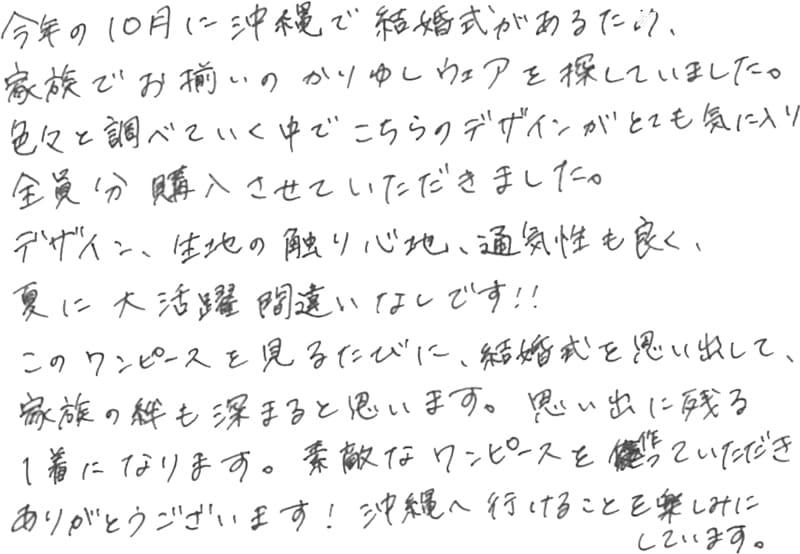 今年の10月に沖縄で結婚式があるため、
家族でお揃いのかりゆしウェアを探していました。
色々と調べていく中でこちらのデザインがとても気に入り
全員分購入させていただきました。
デザイン、生地の触り心地、通気性も良く、
夏に大活躍間違いなしです!!
このワンピースを見るたびに、結婚式を思い出して、
家族の絆も深まると思います。思い出に残る
1着になります。素敵なワンピースを作っていただき
ありがとうございます！沖縄へ行けることを楽しみに
しています。